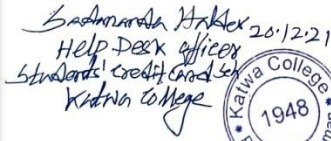 Sadananda Halder 20.12.21
Help Desk officer
Students' Credit Card Cell
Katwa College
Katwa College
1948